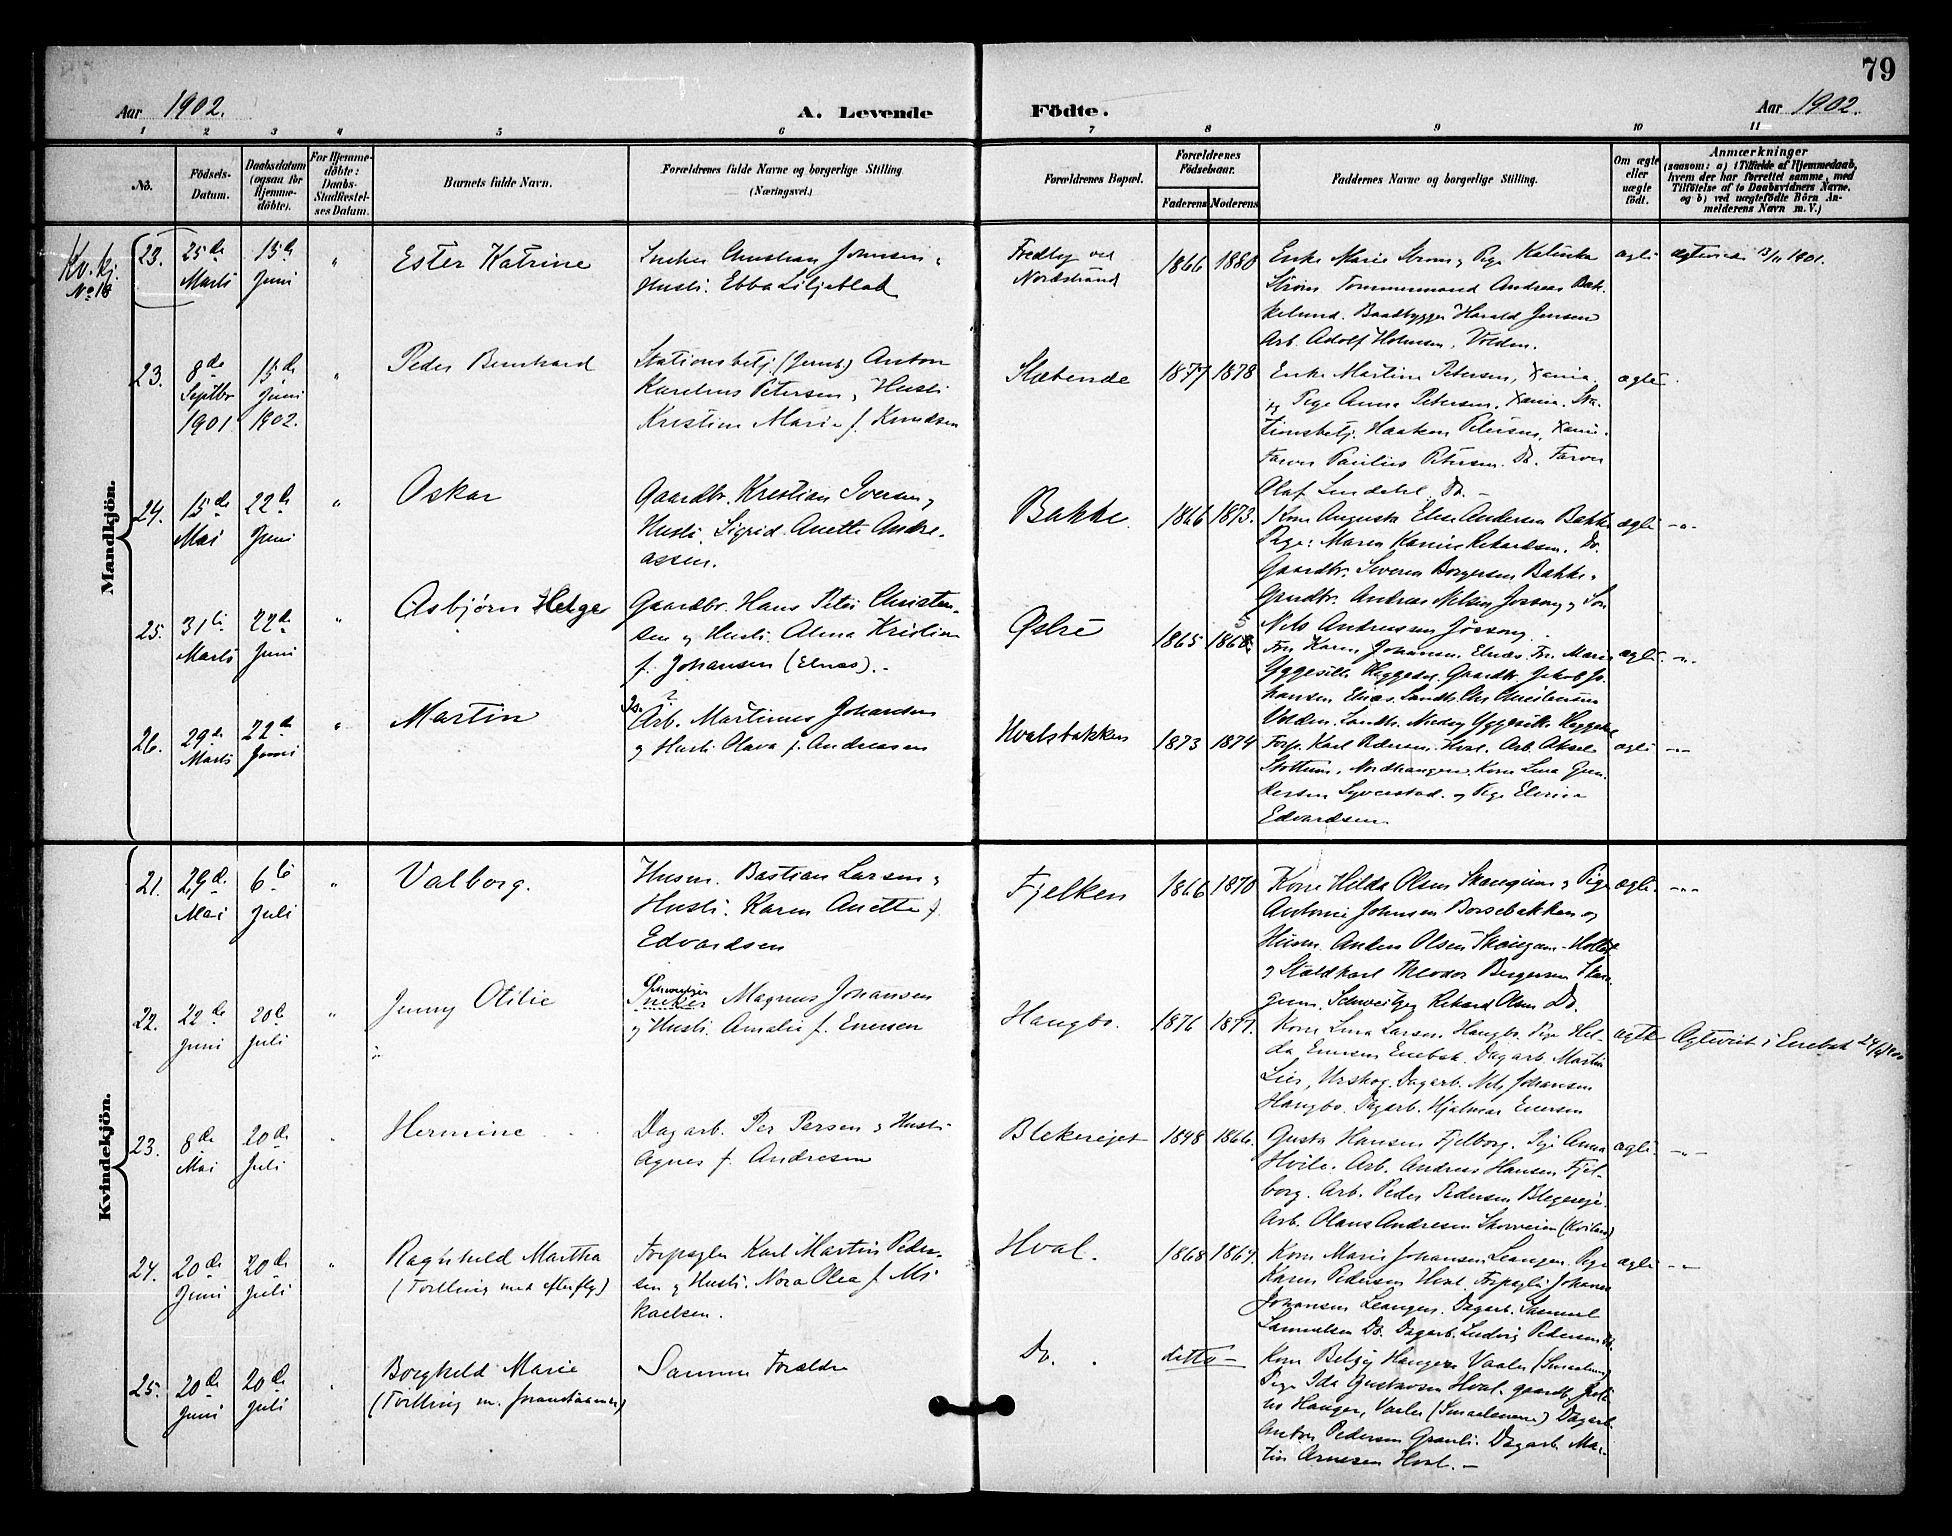 79
Aar 1902.
A. Levende Födte.
Aar 1902.
1 2 3 4 5 6 7 8 9 10 11
No.
Födsels-Datum.
Daabsdatum (ogsaa for Hjemme-döbte).
For Hjemme-döbte: Daabs-Stadfæstel-ses Datum.
Barnets fulde Navn.
Forældrenes fulde Navne og borgerlige Stilling (Næringsvei.)
Forældrenes Bopæl.
Forældrenes Födselsaar.
Faderens Moderens
Faddernes Navne og borgerlige Stilling.
Om ægte eller uægte födt.
Anmærkninger
(saasom: a) i Tilfælde af Hjemmedaab, hvem der har forrettet samme, med Tilföielse af to Daabsvidners Navne. og b) ved uægtefödte Börn An-melderens Navn m. V.)
Mandkjön.
Kv. kj. No 18
23. 25de Marts
15de Juni
"
Ester Katrine
Christian Jonsen
Hustr. Ebba Liljeblad
Fredly ved
Nordstrand
1866 1880
Enke Marie Strøm, Pige Katinka
Strøm Tømmermand Andreas Bak-
kelund. Baadbygger Harald Jensen
Arb. Adolf Holmsen, Volden.
ægte
23. 8de Septbr 1901
15de Juni 1902.
"
Peder Bernhard
Stationsbetj. (Jernb.) Anton
Karelius Petersen, Hustr.
Kristine Marie f. Knudsen
Slæbende
1877 1878
Enke Martine Petersen, Xania.
Pige Anna Petersen, Xania. Sta-
tionsbetj. Haakon Petersen, Xania.
Farver Paulius Petersen. Do. Farver
Olaf Lindahl. Do. –
ægte
24. 15de Mai
22de Juni
"
Oskar
Gaardbr. Kristian Iversen,
Hustr. Sigrid Anette Andre-
assen.
Bakke
1866 1873.
Kone Augusta Else Andersen Bakke
Pige: Maren Karine Rikardsen. Do.
Gaardbr. Severin Borgersen Bakke,
Gaardbr. Andreas Nilsen Jøssong, Søn
Nils Andreassen Jøssong.
ægte
25. 31te Marts
22de Juni
"
Asbjørn Helge
Gaardbr. Hans Peter Christen-
sen og Hustr. Alma Kristine
f. Johansen (Elnæs).-
Østre
1865
Fru Karen Johansen, Elnæs. Fru Marie
Yggeseth Heggedal. Gaardbr. Jakob Jo-
hansen Elnæs. Landh. Chr. Christensen
Volden. Landh. Yggeseth Heggedal
ægte
26. 29de Marts
22de Juni
"
Martin
Arb. Martinus Johansen
og Hustr. Olava f. Andreasen
Hvalsbakken
1873 1874
Forp. Karl Pedersen. Hval. Arb. Aksel
Stottum, Nordhangen. Kone Lina Gun-
dersen Syverstad. og Pige Elvine
Edvardsen.
ægte
Kvindekjön.
21. 29de Mai
6te Juli
"
Valborg.
Husm. Bastian Larsen,
Hustr. Karen Anette f.
Edvardsen
Fjelken
1866 1870
Kone Hilda Olsen Skaugum, Pige
Antonie Johnsen Borsebakken og
Husm. Anders Olsen Skaugum-
og Staldkarl Theodor Bergersen Skau-
gum. Schweitzer Rikard Olsen Do.
ægte.
22. 22de Juni
20de Juli
"
Jenny Otilie
Magnus Johansen
og Hustr. Amalie f. Enersen
Haugbo.
1876 1877.
Kone Lina Larsen. Haugbo. Pige Hil-
da Enersen Enebak. Dagarb. Martin
Lier, Urskog. Dagarb. Nils Johansen
Haugbo. Dagarb. Hjalmar Enersen
ægte
Ægteviet i Enebak 24/4 1900
23. 8de Mai
20de Juli
Hermine
Dagarb. Per Persen og Hustr.
Agnes f. Andresen
Blekerejet
1848 1866.
Gusta Hansen Fjelborg. Pige Anna
Hvile. Arb. Andreas Hansen Fjel-
borg. Arb. Peder Pedersen Blegereje.
Arb. Olaus Andresen Skovveien (Kvilen)
ægte.
24. 20de Juni
20de Juli
"
Ragnhild Martha
(Tvilling med efterflg.)
Forpagter Karl Martin Peder-
sen og Hustr. Nora Olea f. Mi-
kaelsen.
Hval.
1868 1867.
Kone Marie Johansen Leangen. Pige
Karen Pedersen Hval. Forpagter Johannes
Johansen Leangen. Dagarb. Samuel
Samuelsen Do. Dagarb. Ludvig Pedersen Do.
ægte
25. 20de Juni
20de Juli
"
Borghild Marie
(Tvilling m. foranstaaende)
Samme Forældre
Do.
ditto –
Kone Hanger Vaaler (Smaalenene)
Pige Ida Gustavsen Hval. gaardbr.
Hanger, Vaaler (Smaalenene) Dagarb.
Anton Pedersen Granli. Dagarb. Mar-
tin Arnesen Hval. –